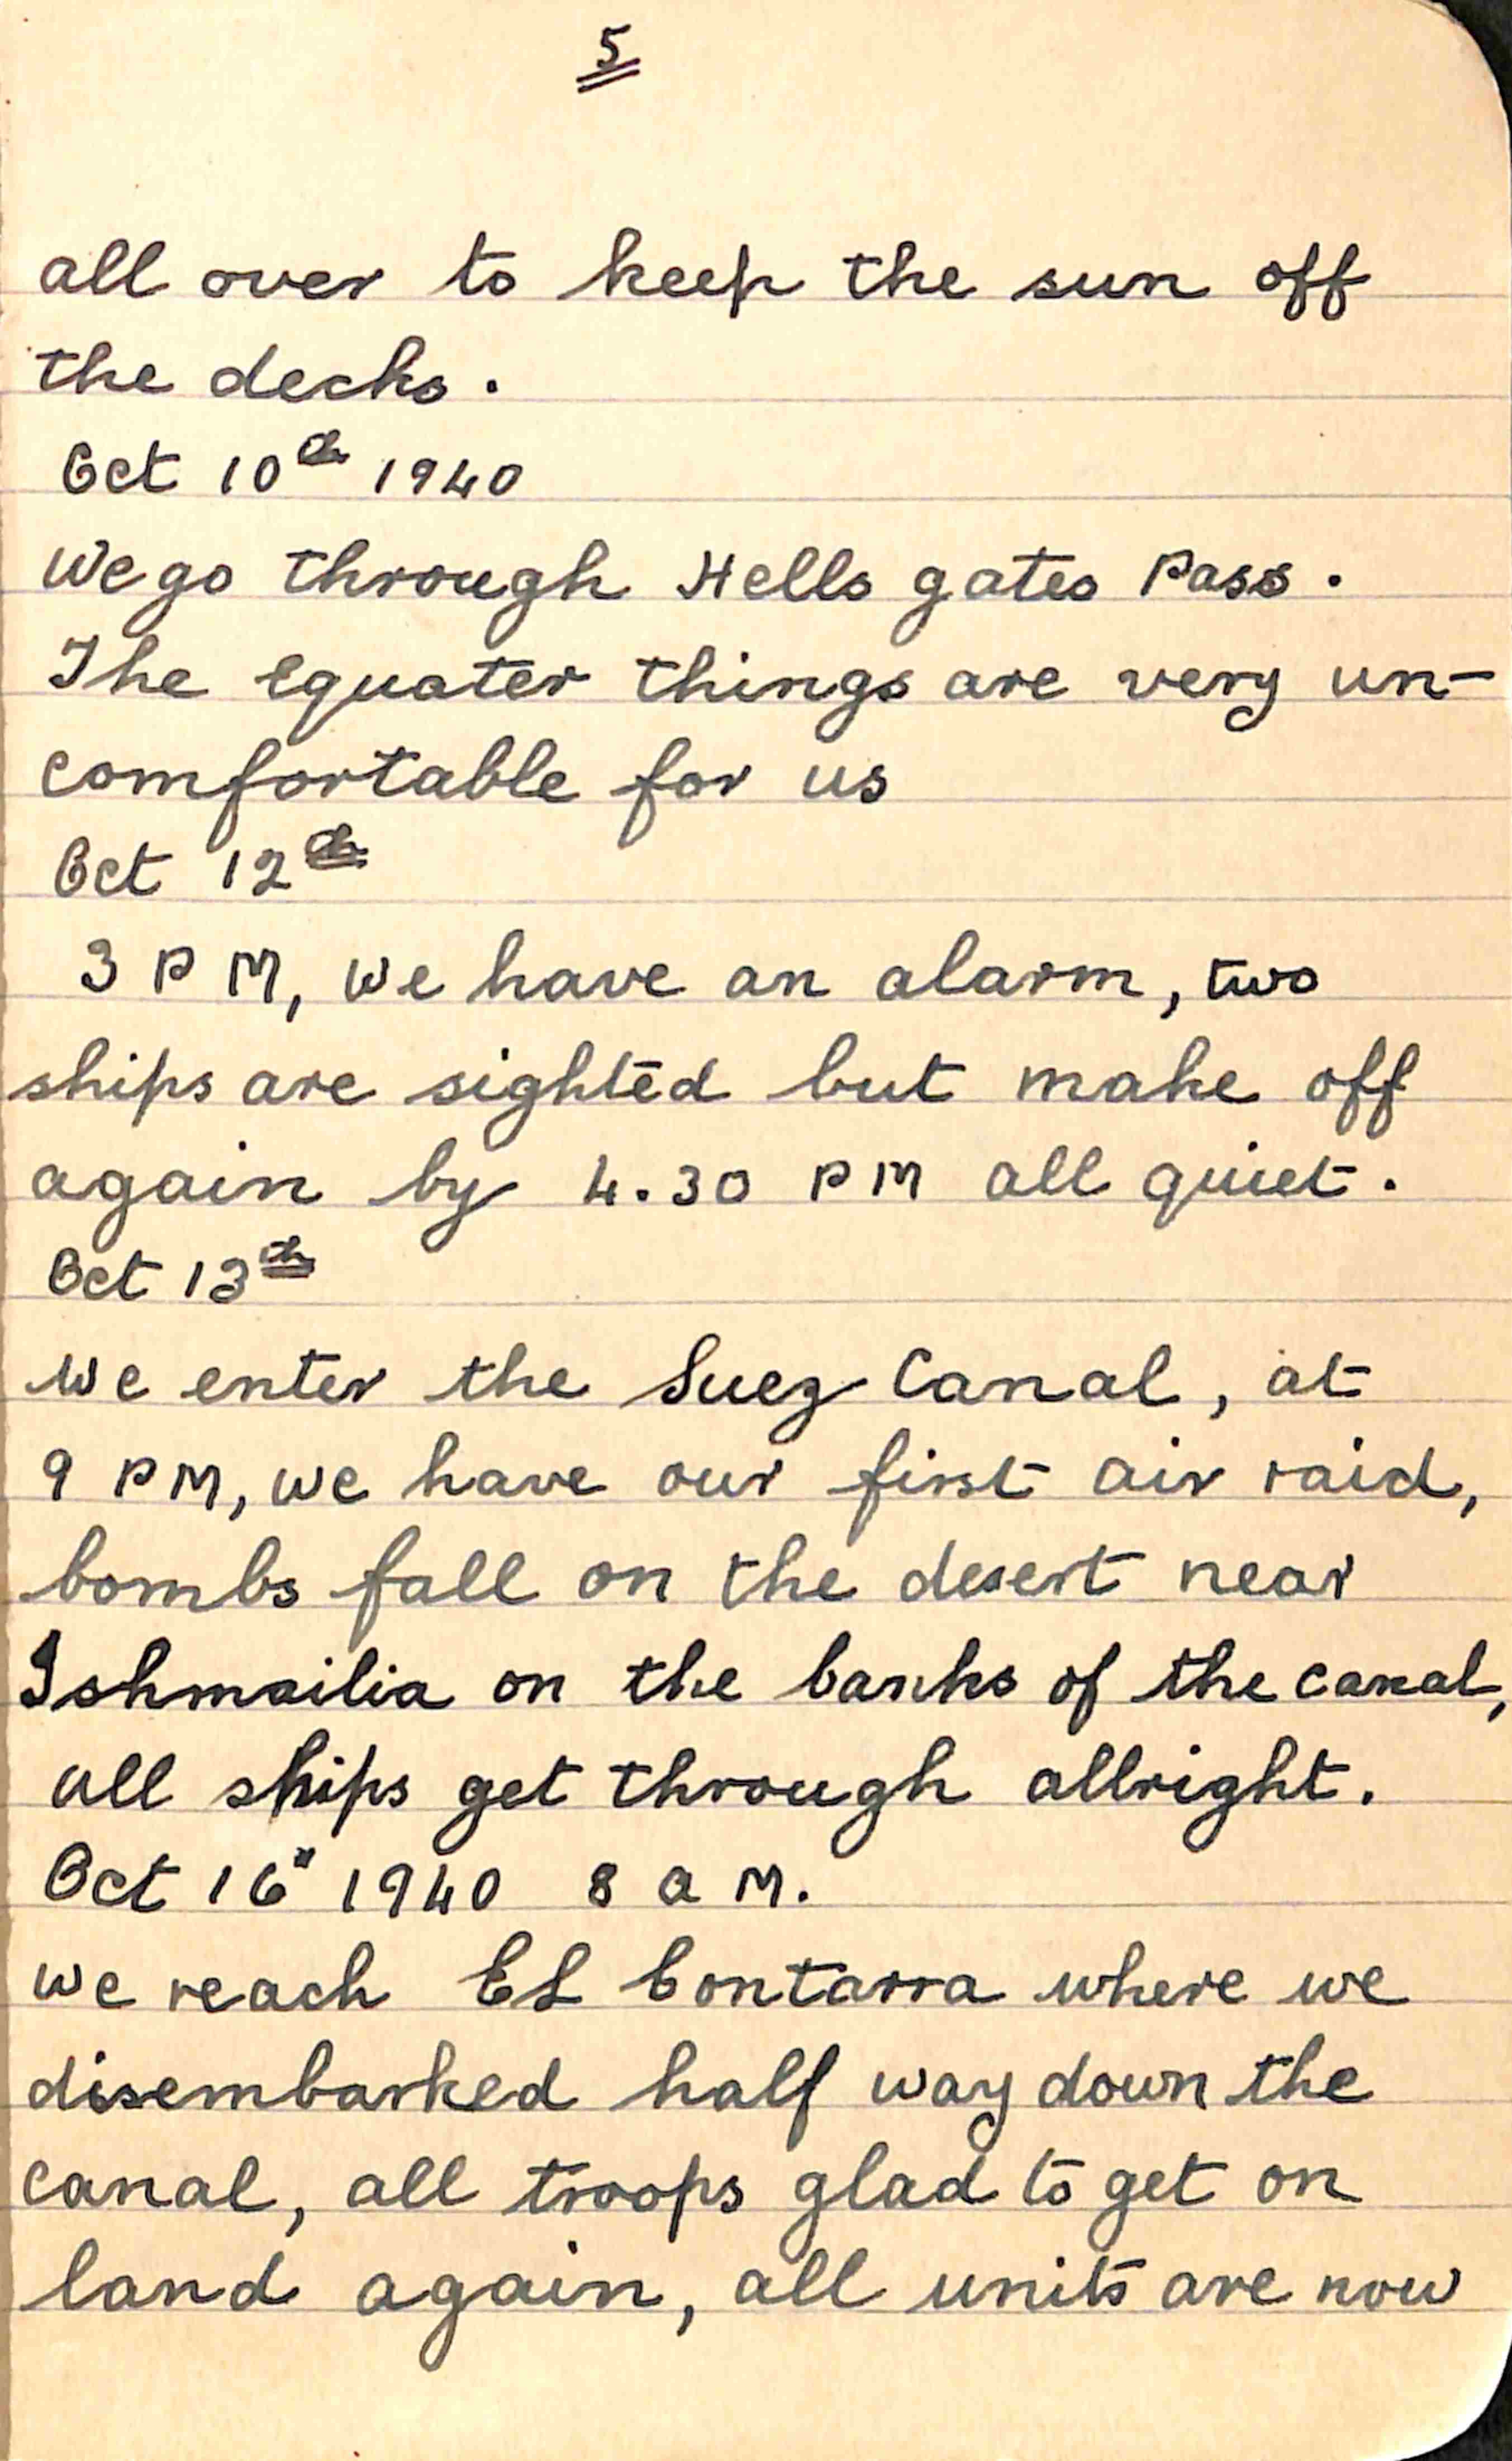 5
all over to keep the sun off
the decks.
Oct 10th 1940
We go through Hells gates Pass.
The Equater things are very un-
comfortable for us
Oct 12th
3 PM, we have an alarm, two
ships are sighted but make off
again by 4.30 PM all quiet.
Oct 13th
We enter the Suez Canal, at
9 PM, we have our first air raid,
bombs fall on the desert near
Ishmailia on the banks of the canal,
all ships get through allright.
Oct 16" 1940 8 a M.
we reach EL Contarra where we
disembarked half way down the
canal, all troops glad to get on
land again, all units are now